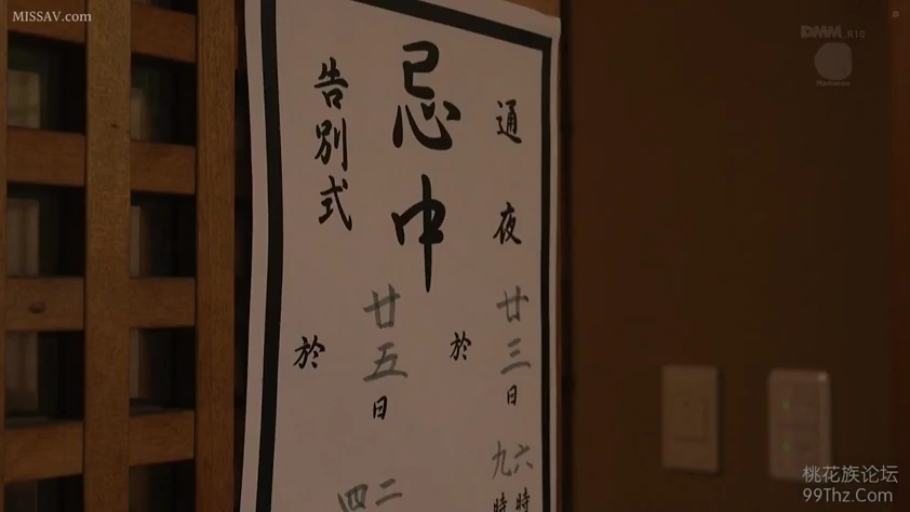 MISSAV.com
DMM.R18
忌中
通夜
廿三日
六時
九時
於
告別式
廿五日
二
四
於
桃花族论坛
99Thz.Com